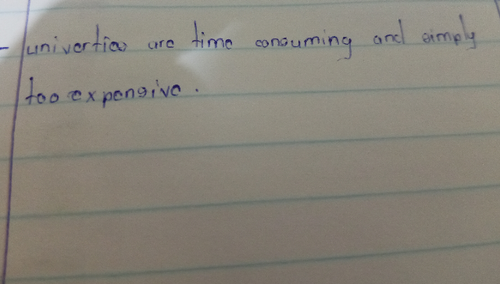 - univerties are time consuming and simply
too expensive.